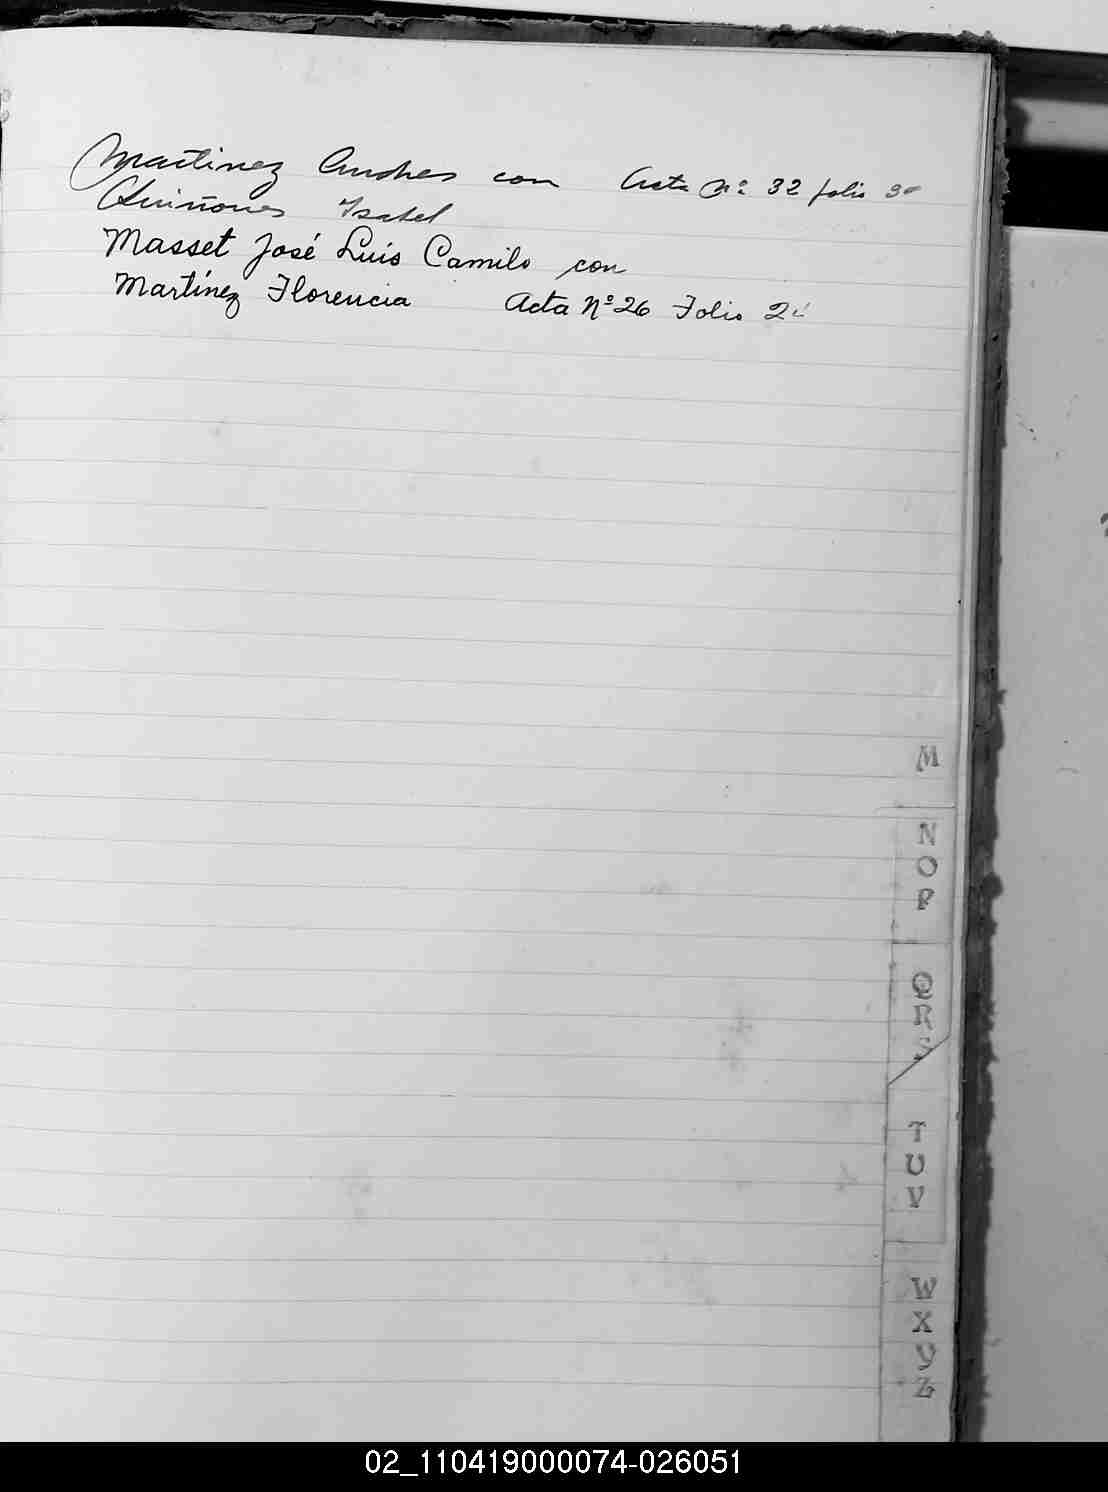 Martinez Andres con Acta Nº 32 folio
Quiñones Isabel
Masset José Luis Camilo con
Martínez Florencia Acta Nº 26 Folio
M
N
O
P
Q
R
S
T
U
V
W
X
Y
Z
02_110419000074-026051